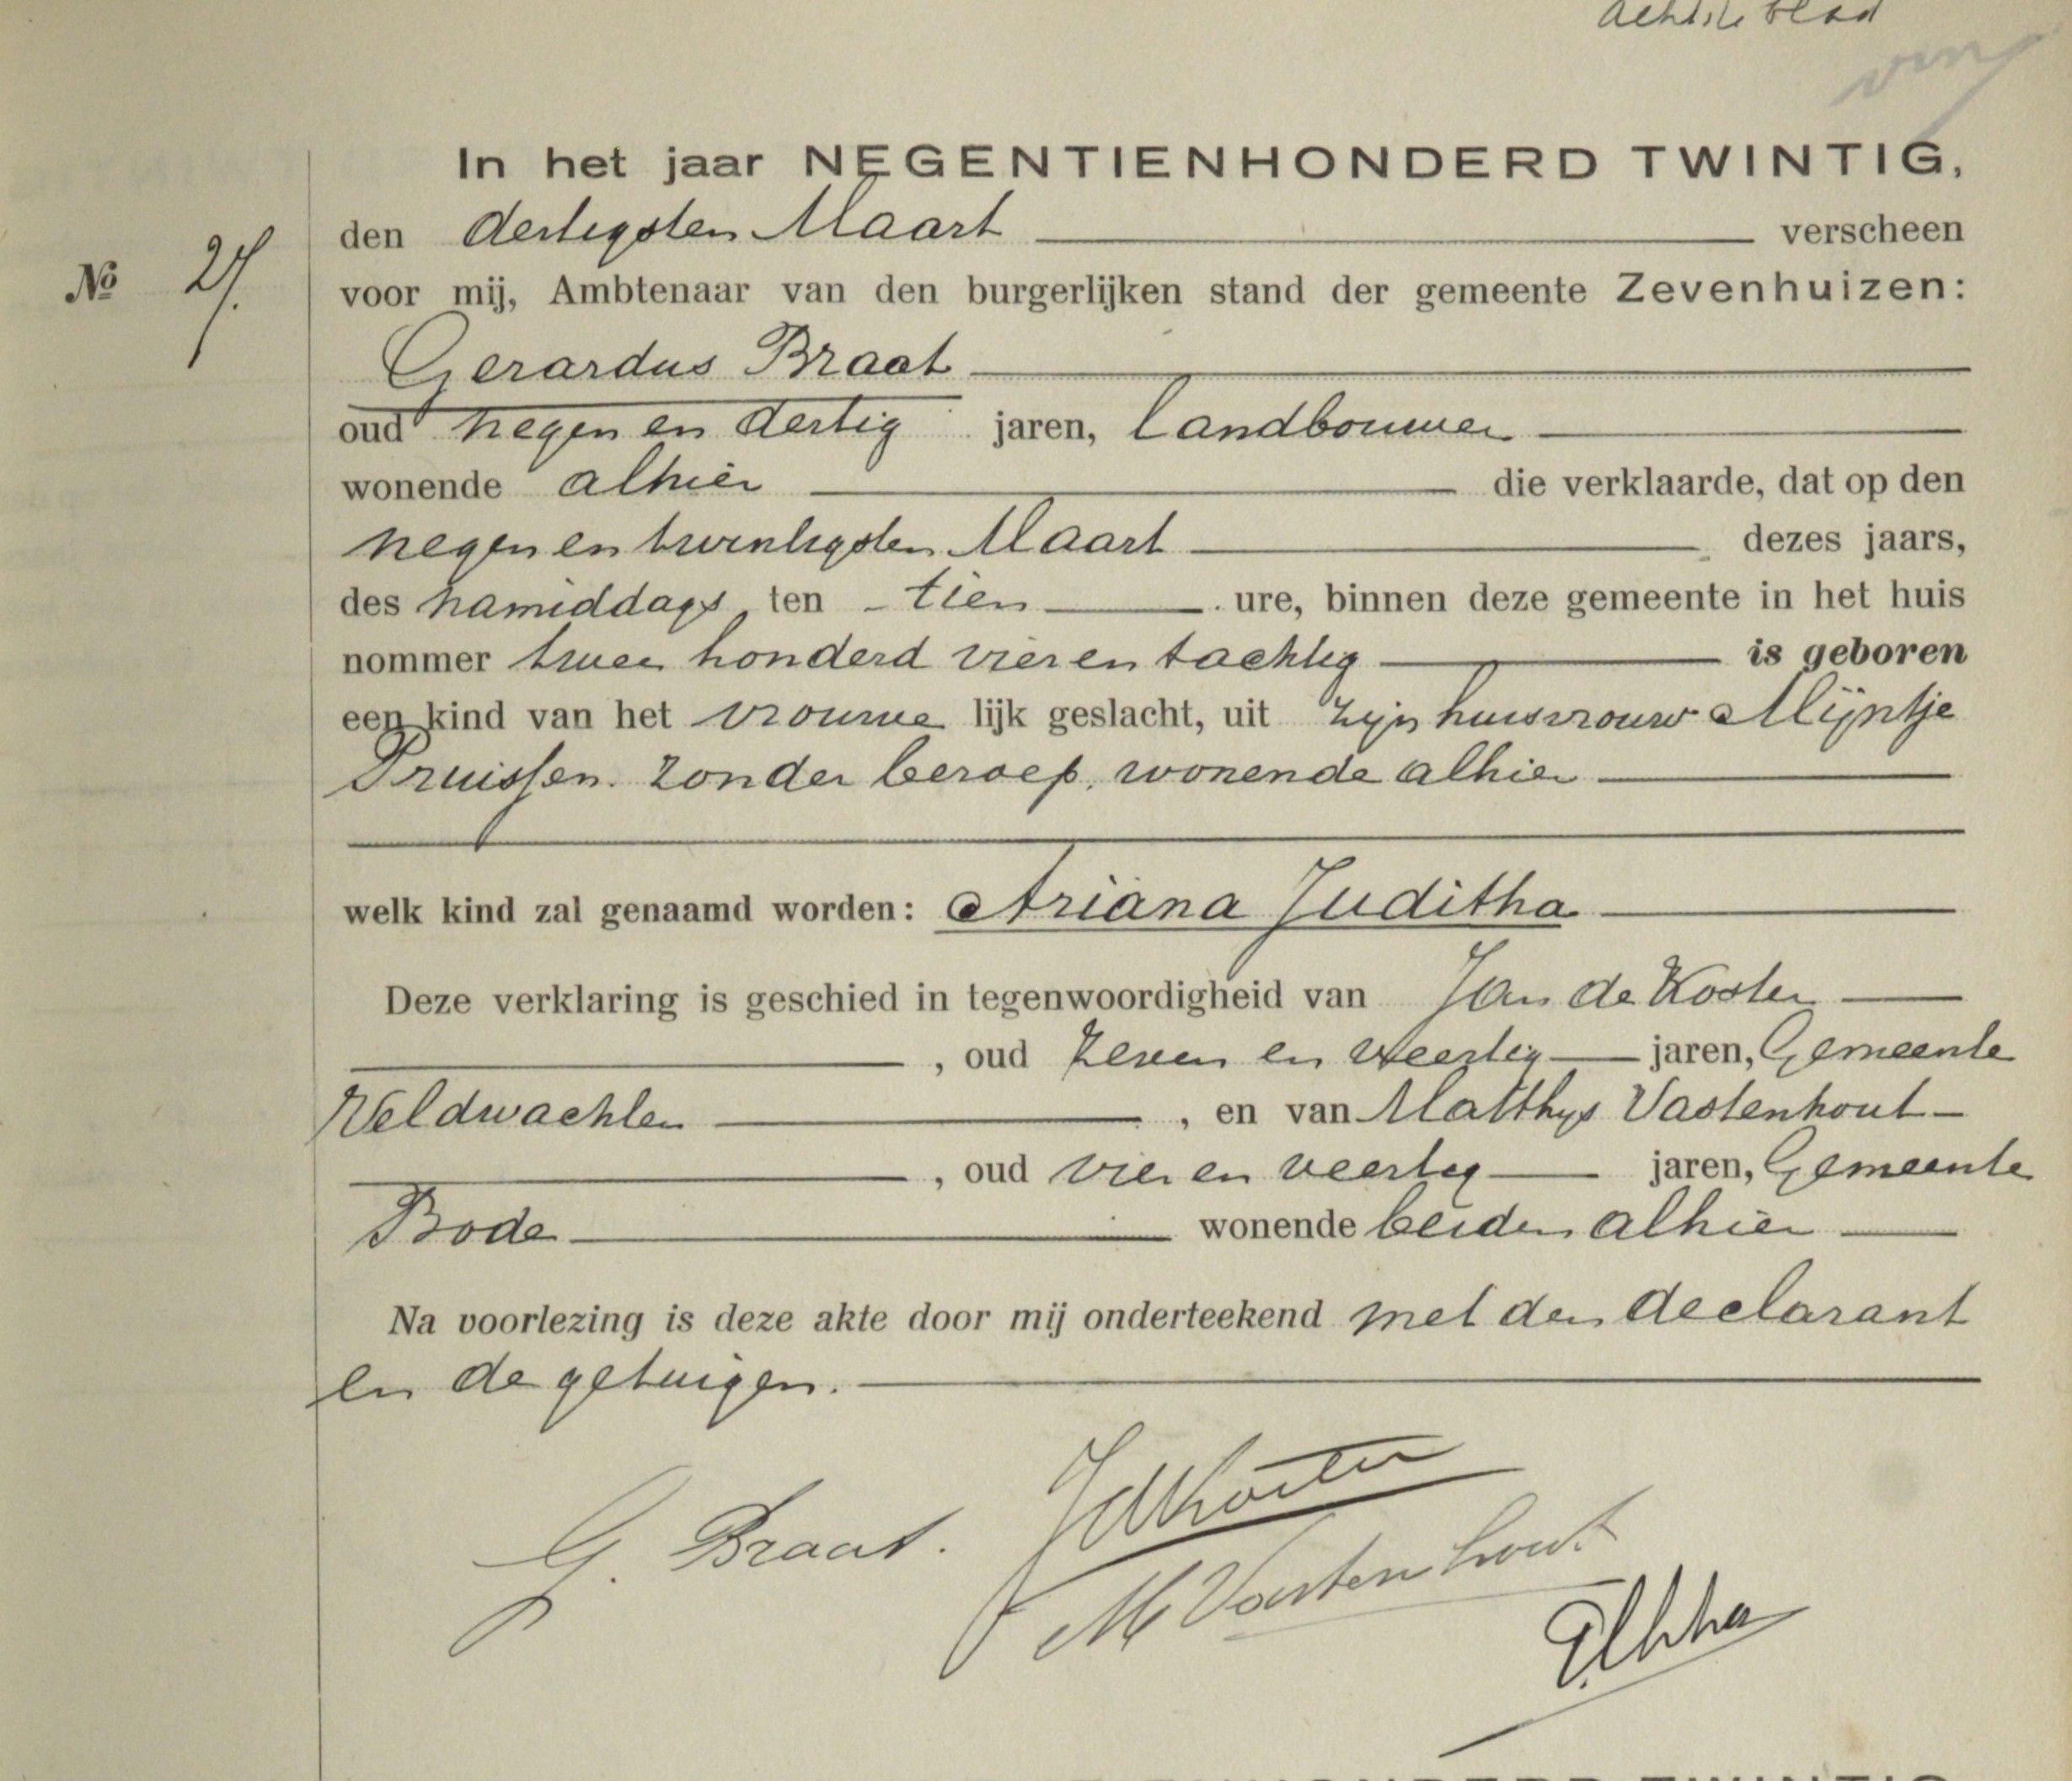 achtste blad
In het jaar NEGENTIENHONDERD TWINTIG,
den dertigsten Maart verscheen
No 27.
voor mij, Ambtenaar van den burgerlijken stand der gemeente Zevenhuizen:
Gerardus Braat
oud negen en dertig jaren, landbouwer
wonende alhier die verklaarde, dat op den
negen en twintigsten Maart dezes jaars,
des namiddags ten tien ure, binnen deze gemeente in het huis
nommer twee honderd vier en tachtig is geboren
een kind van het vrouwe lijk geslacht, uit zijn huisvrouw Mijntje
Pruissen. zonder beroep, wonende alhier
welk kind zal genaamd worden: Ariana Juditha
Deze verklaring is geschied in tegenwoordigheid van Jan de Koster
, oud zeven en veertig jaren, Gemeente
Veldwachter , en van Matthys Vastenhout
, oud vier en veertig jaren, Gemeente
Bode wonende beiden alhier
Na voorlezing is deze akte door mij onderteekend met den declarant
en de getuigen.
G. Braat.
JdKoster
M Vastenhout